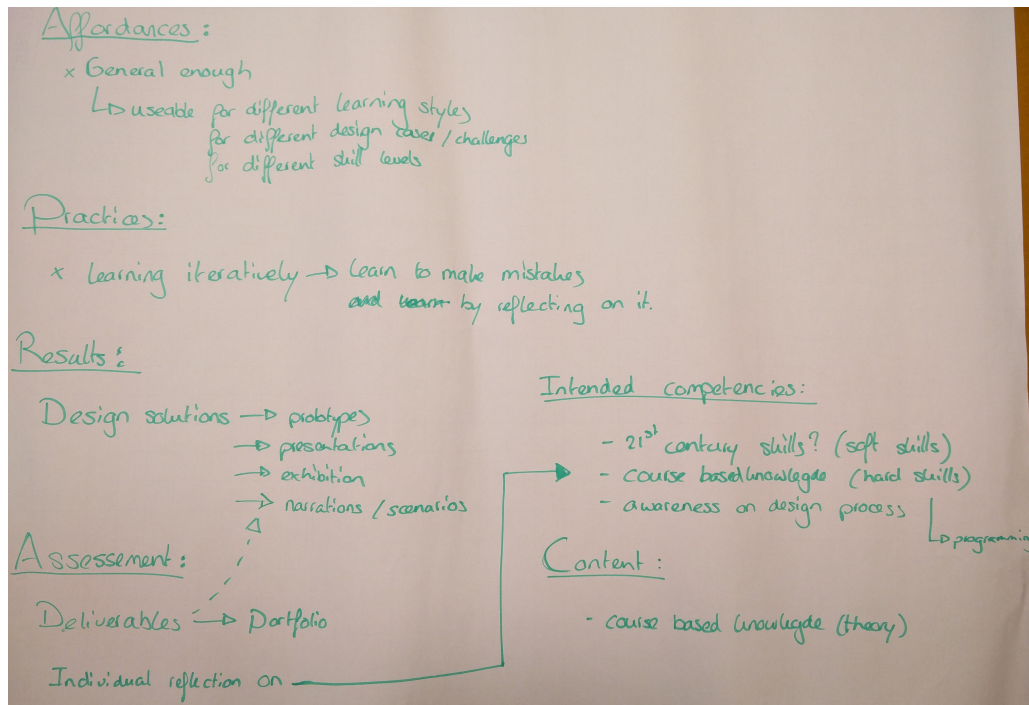 Affordances:
x General enough
↳ useable for different learning styles
for different design cases / challenges
for different skill levels
Practices:
x learning iteratively → learn to make mistakes
and learn by reflecting on it.
Results:
Design solutions → prototypes
→ presentations
→ exhibition
→ narrations / scenarios
Assessement:
Deliverables → Portfolio
Individual reflection on
Intended competencies:
- 21st century skills? (soft skills)
- course based knowlegde (hard skills)
- awareness on design process
↳ programming
Content:
- course based knowlegde (theory)